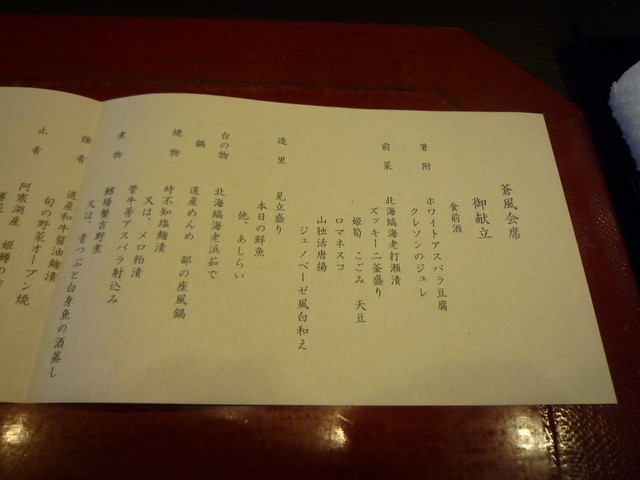 蒼風会席
御献立
食前酒
箸附
ホワイトアスパラ豆腐
クレソンのジュレ
前菜
北海縞海老打瀬漬
ズッキー二釜盛り
姫筍 こごみ 天豆
ロマネスコ
山独活唐揚
ジェノベーゼ風白和え
造里
見立盛り
本日の鮮魚
他、あしらい
台の物
北海縞海老浜茹で
鍋
道産めんめ 鄙の座風鍋
焼物
時不知塩麹漬
又は、メロ粕漬
管牛蒡アスパラ射込み
煮物
鱈場蟹吉野煮
又は、青つぶと白身魚の酒蒸し
強肴
道産和牛醤油麹漬
旬の野菜オーブン焼
止肴
阿寒湖産 姫鱒の